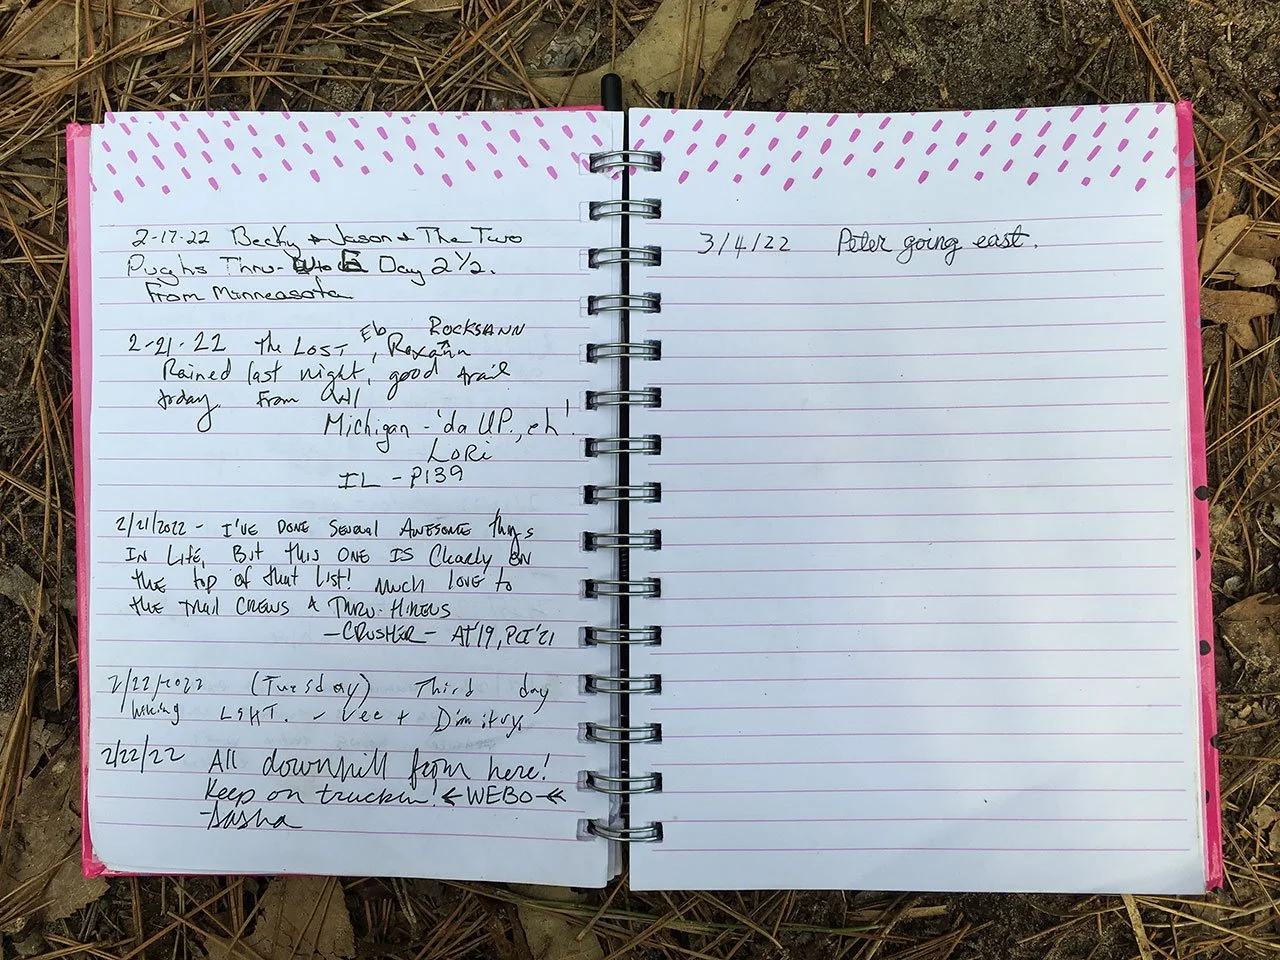 2-17-22 Becky + Jason + The Two
Pughs Thru- W to E Day 2 1/2.
From Minneasota
2-21-22 The LOST Eb, Roxann ROCKSANN
Rained last night, good trail
today. From
Michigan - 'da U.P., eh!
LORi
IL - P139
2/21/2022 - I'VE DONE SEVERAL AWESOME Thngs
IN LIFE, BUt this ONE IS Clearly ON
the top of that list! Much LOVE to
the trail CREWS & THRU-HIKERS
-CRUSHER- AT'19, PCT'21
2/22/2022 (Tuesday) Third day
hiking LSHT. - Lee + Dimitry.
2/22/22 All downhill from here!
Keep on truckin! WEBO
-Sasha
3/4/22 Peter going east.